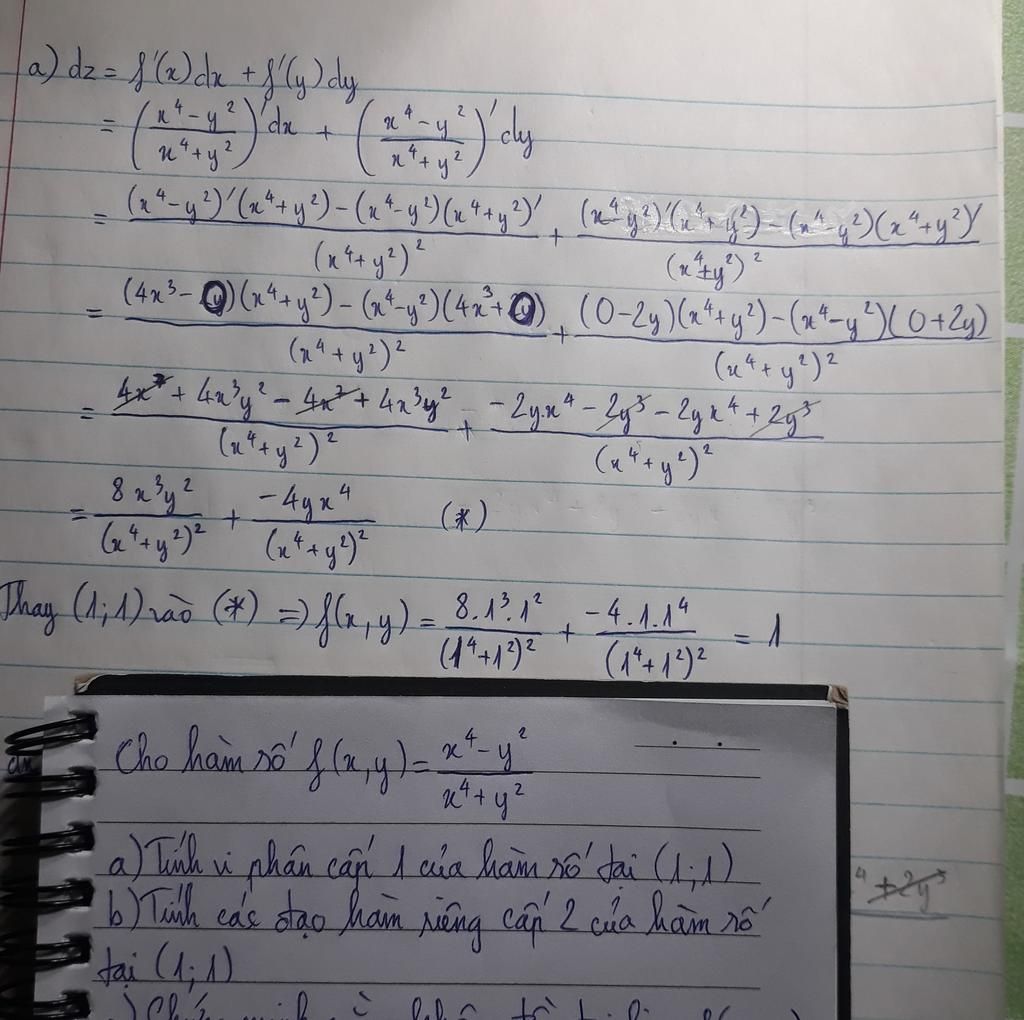 a) dz = f'(x)dx + f'(y)dy
= ((x⁴ - y²)/(x⁴ + y²))'dx + ((x⁴ - y²)/(x⁴ + y²))'dy
= ((x⁴ - y²)'(x⁴ + y²) - (x⁴ - y²)(x⁴ + y²)')/(x⁴ + y²)² + ((x⁴ y²)'(x⁴ + y²) - (x⁴ - y²)(x⁴ + y²)')/(x⁴ + y²)²
= ((4x³ - 0)(x⁴ + y²) - (x⁴ - y²)(4x³ + 0))/(x⁴ + y²)² + ((0 - 2y)(x⁴ + y²) - (x⁴ - y²)(0 + 2y))/(x⁴ + y²)²
= (4x⁷ + 4x³y² - 4x⁷ + 4x³y²)/(x⁴ + y²)² + (-2y.x⁴ - 2y³ - 2yx⁴ + 2y³)/(x⁴ + y²)²
= 8x³y²/(x⁴ + y²)² + -4yx⁴/(x⁴ + y²)² (*)
Thay (1;1) vào (*) => f(x,y) = 8.1³.1²/(1⁴ + 1²)² + -4.1.1⁴/(1⁴ + 1²)² = 1
Cho hàm số f(x,y) = (x⁴ - y²)/(x⁴ + y²)
a) Tính vi phân cấp 1 của hàm số tại (1;1)
b) Tính các đạo hàm riêng cấp 2 của hàm số
tại (1;1)
⁴ + 2y³